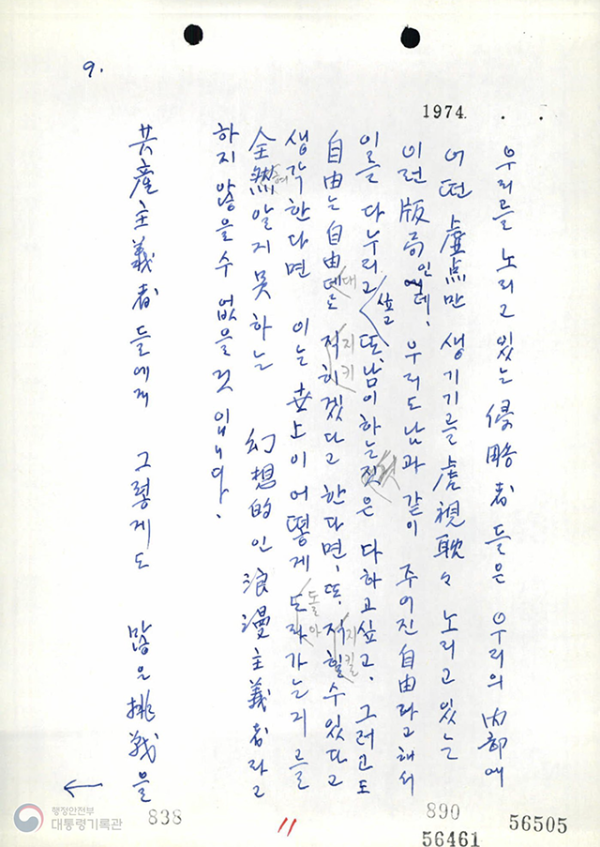 9.
1974. . .
우리를 노리고 있는 侵略者들은 우리의 內部에
어떤 虛点만 생기기를 虎視耽々 노리고 있는
이런 版局인데, 우리도 남과 같이 주어진 自由라고 해서
이를 다 누리고 싶고 또, 남이 하는 짓은 다 하고 싶고, 그러고도
自由는 自由대로 지키겠다고 한다면, 또, 지킬 수 있다고
생각한다면 이는 世上이 어떻게 돌아가는지를
全然 알지 못하는 幻想的인 浪漫主義者라고
하지 않을 수 없을 것입니다.
共産主義者들에게 그렇게도 많은 挑戰을
행정안전부
대통령기록관
838
11
890
56461
56505